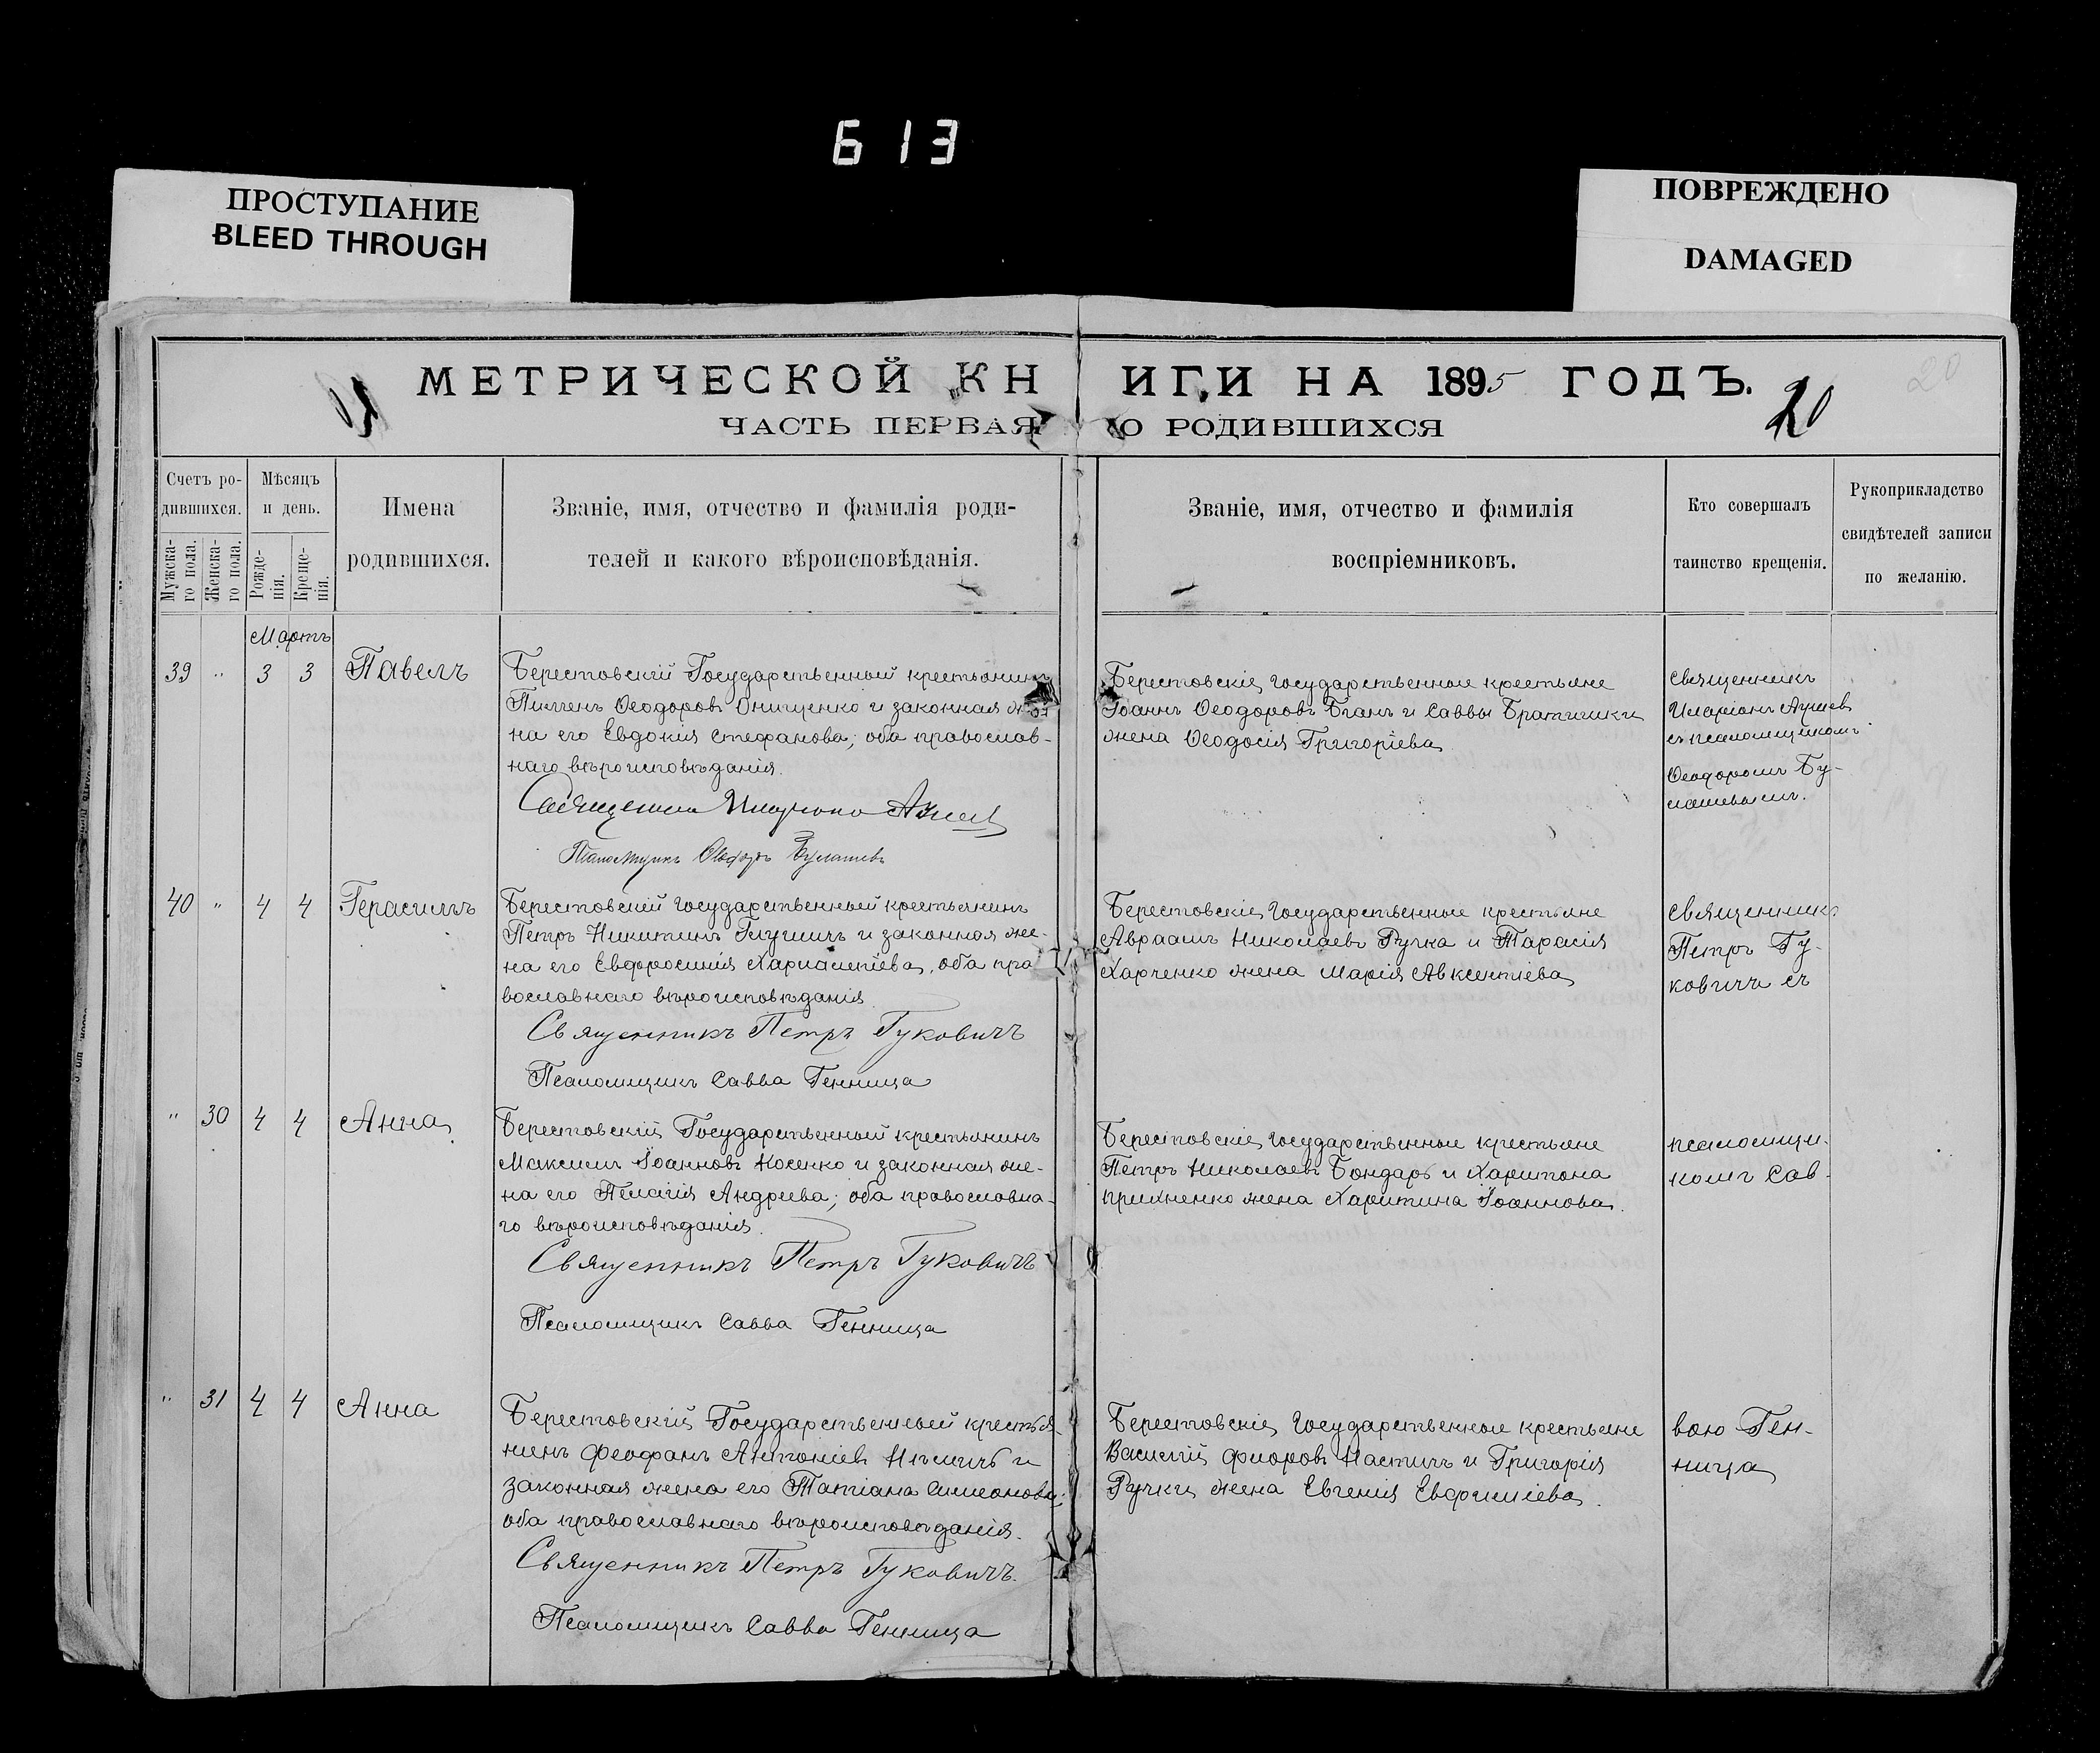 613
ПРОСТУПАНИЕ
BLEED THROUGH
ПОВРЕЖДЕНО
DAMAGED
МЕТРИЧЕСКОЙ КНИГИ НА 1895 ГОДЪ.
20
20
ЧАСТЬ ПЕРВАЯ О РОДИВШИХСЯ
Счетъ ро-
дившихся.
Мужска-
го пола.
Женска-
го пола.
Мѣсяцъ
и день.
Рожде-
нія.
Креще-
нія.
Имена
родившихся.
Званіе, имя, отчество и фамилія роди-
телей и какого вѣроисповѣданія.
Званіе, имя, отчество и фамилія
воспріемниковъ.
Кто совершалъ
таинство крещенія.
Рукоприкладство
свидѣтелей записи
по желанію.
Мартъ
39 " 3 3 Павелъ
Берестовскій Государственный крестьянинъ
Пименъ Ѳеодоровъ Онищенко и законная же-
на его Евдокія Стефанова; оба православ-
наго вѣроисповѣданія.
Священникъ Иларіонъ
Псаломщикъ Ѳеодоръ Булашевъ
Берестовскіе государственные крестьяне
Іоаннъ Ѳеодоровъ Бганъ и Саввы Братишки
жена Ѳеодосія Григоріева
священникъ
Иларіонъ
съ псаломщикомъ
Ѳеодоромъ Бу-
лашевымъ.
40 " 4 4 Герасимъ
Берестовскій государственный крестьянинъ
Петръ Никитинъ Глушичъ и законная же-
на его Евфросинія Харлампіева, оба пра
вославнаго вѣроисповѣданія
Священникъ Петръ Гуковичъ
Псаломщикъ Савва Генница
Берестовскіе государственные крестьяне
Авраамъ Николаевъ Ручка и Тарасія
Харченко жена Марія Авксентіева
священникъ
Петръ Гу-
ковичъ съ
" 30 4 4 Анна
Берестовскій Государственный крестьянинъ
Максимъ Іоанновъ Носенко и законная же-
на его Пелагія Андреева; оба православна-
го вѣроисповѣданія.
Священникъ Петръ Гуковичъ
Псаломщикъ Савва Генница
Берестовскіе государственные крестьяне
Петръ Николаевъ Бондарь и Харитона
Прихненко жена Харитина Іоаннова.
псаломщи-
комъ Сав-
" 31 4 4 Анна
Берестовскій Государственный крестья-
нинъ Феофанъ Антоніевъ и
законная жена его Татіана Симеонова;
оба православнаго вѣроисповѣданія.
Священникъ Петръ Гуковичъ.
Псаломщикъ Савва Генница
Берестовскіе государственные крестьяне
Василій Фиоровъ Настичъ и Григорія
Ручки жена Евгенія Евфиміева.
вою Ген-
ница